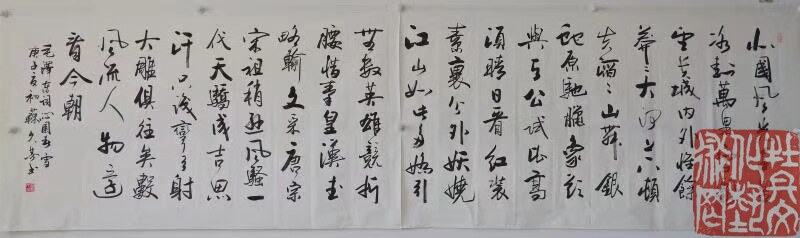 北國風光
冰封萬里
望長城內外惟餘
莽莽大河上下頓
失滔滔山舞銀
蛇原馳臘象欲
與天公試比高
須晴日看紅裝
素裹分外妖嬈
江山如此多嬌引
無數英雄競折
腰惜秦皇漢武
略輸文采唐宗
宋祖稍遜風騷一
代天驕成吉思
汗只識彎弓射
大雕俱往矣數
風流人物還
看今朝
毛澤東詞沁園春雪
庚子夏初蘇久芳書